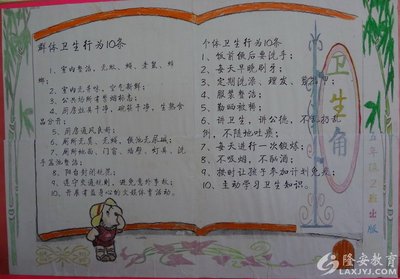 群体卫生行为10条
1、室内整洁,无蚊、蝇、老鼠、蟑
螂;
2、室内无异味,空气新鲜;
3、公共场所有禁烟标志;
4、厨房炊具干净,碗筷干净,生熟食
品分开;
5、厨房通风良好;
6、厕所无臭、无蝇、便池无尿碱;
7、厕所地面、门窗、墙壁、灯具、洗
手器池整洁;
8、阳台封闭规范;
9、遵守交通规则,避免意外事故;
10、开展有益身心的文娱体育活动。
个体卫生行为10条
1、饭前便后要洗手;
2、每天早晚刷牙;
3、定期洗澡、理发、剪指甲;
4、服装整洁;
5、勤晒被褥;
6、讲卫生,讲公德,不乱扔乱
倒,不随地吐痰;
7、每天进行一次锻炼;
8、不吸烟,不酗酒;
9、按时让孩子参加计划免疫;
10、主动学习卫生知识。
卫生角
五年级卫班出版
隆安教育
LAXJYJ.COM